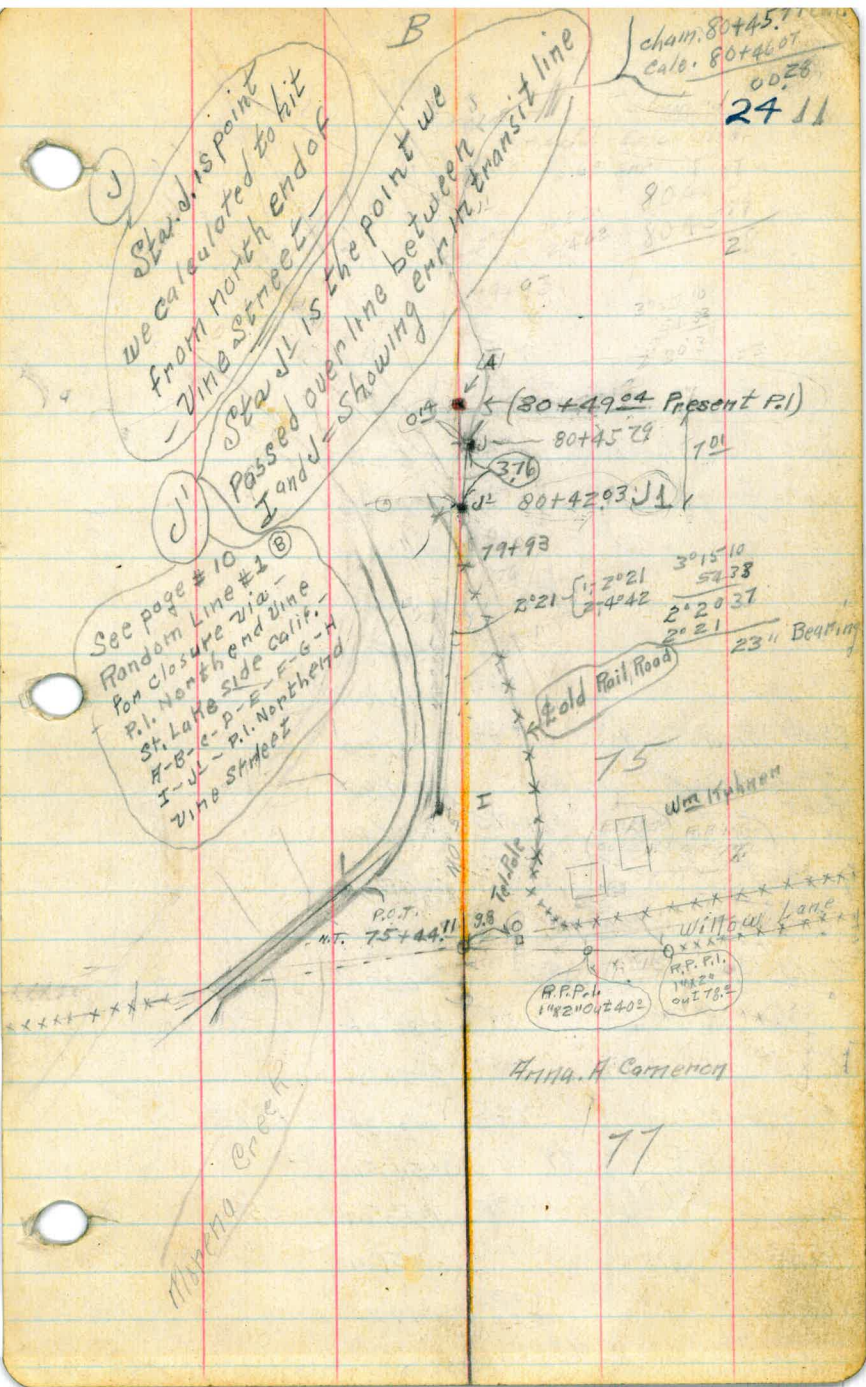 B
chain. 80+45.79
calc. 80+46.07
00.28
24 11
J
Sta. J. is point
we calculated to hit
from north end of
- Vine Street -
J1
Sta J1 is the point we
Passed over line between
I and J - Showing error in transit line
B
See page # 10
Random Line #1
For Closure via -
P.I. North end Vine
St. Lake side Calif. -
A-B-C-D-E-F-G-H
I-J1- P.I. North end
Vine Street
A
(80+49.04 Present P.I)
0.14
J
80+45.79
3.76
7.01
J1 80+42.03 J1
79+93
2°21 { 1, 2°21
2, 4°42
3°15 10
54 33
2°20 37
2°21
23" Bearing
℄ old Rail, Road
75
Wm Kuhner
H
Tel. Pole
P.O.T.
N.T. 75+44.11
9.8
Willow Lane
R.P.P.I.
1"x2" Out 40.0
R.P. P.I.
1"x2"
out 78.0
Anna. A Cameron
77
Morena Creek